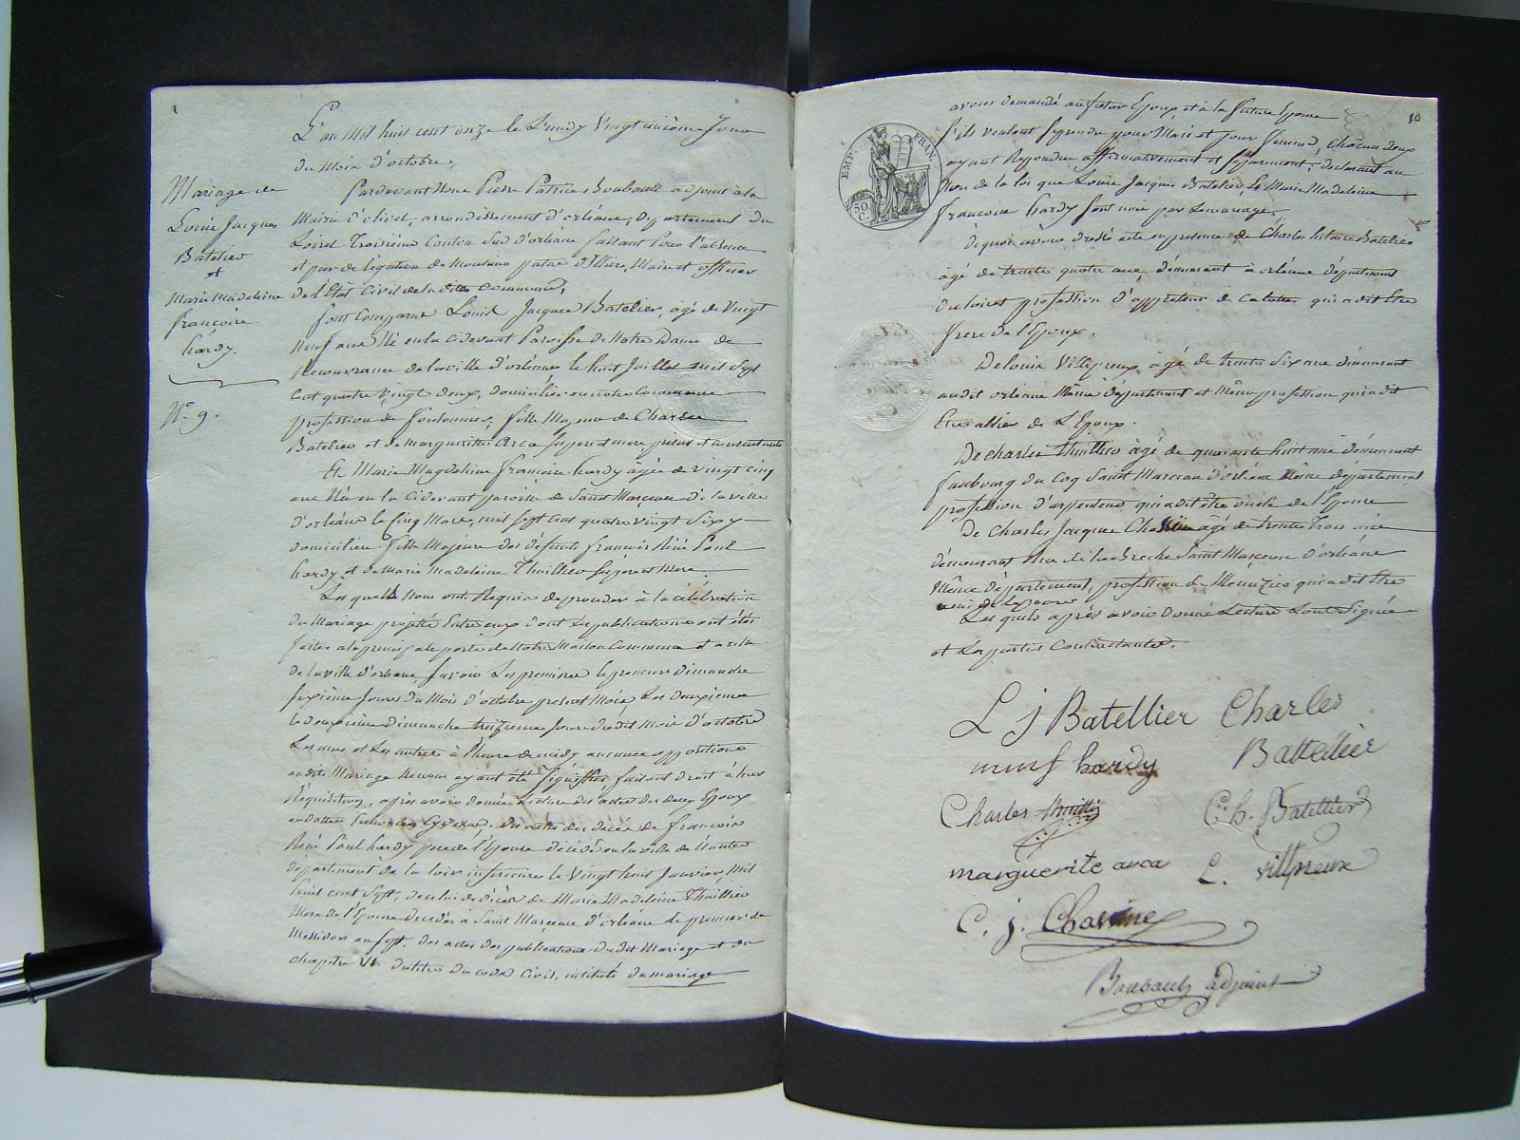 L'an Mil huit cent onze le Lundy Vingt unième Jour
du Mois d'octobre,
Mariage de
Louis Jacques
Batelier
et
Marie Madeleine
françoise
hardy.
N° 9.
Pardevant Nous Pierre Patrice Boubault adjoint à la
Mairie d'olivet, arrondissement d'orléans, Département du
Loiret Troisième Canton Sud d'orléans faisant pour l'absence
et par délégation de Monsieur Maire et officier
de l'État Civil de la ditte Commune,
Sont Comparut Louis Jacques Batelier, agé de Vingt
Neuf ans Né en la cidevant Paroisse de Notre Dame de
Recouvrance de la ville d'orléans le huit Juillet mil Sept
Cent quatre Vingt deux, domicilié en notre Commune
profession de fils Majeur de Charles
Batelier et de Marguerite Arca Ses pere et mere presens et consentants
Et Marie Magdeleine françoise hardy agée de Vingt cinq
ans Née en la Cidevant paroisse de Saint Marceau de la ville
d'orléans le Cinq Mars, mil Sept Cent quatre Vingt Six, y
domiciliée fille Majeure des défunts françois René Paul
hardy et de Marie Madeleine Thuillier Ses pere et Mere.
Lesquels Nous ont Requis de proceder à la célébration
du Mariage projetté Entre eux dont les publications ont été
faites a la principale porte de Notre Maison Commune et a celle
de la ville d'orléans, Savoir Les premieres le premier dimanche
Sixième Jour du Mois d'octobre present Mois, Les deuxiemes
le deuxieme dimanche treizieme Jour dudit Mois d'octobre
Les unes et Les autres à l'heure de midy aucunes oppositions
audit Mariage Ne nous ayant été Signifiées faisant droit à leur
Réquisition, après avoir donné Lecture des actes des deux Epoux
de celui de décès de françois
René Paul hardy pere de l'Epouse décédé en la ville de Nantes
département de la loire inférieure le Vingt huit Janvier, Mil
huit cent Sept, de celui de décès de Marie Madeleine Thuillier
Mere de l'Epouse decedée à Saint Marceau d'orléans le premier de
Messidor an Sept, des actes des publications dudit Mariage et du
chapitre VI du titre du code Civil, intitulé du mariage
10
EMP. FRAN.
50 C.
avons demandé au futur Epoux, et à la future Epouse
S'ils veulent Se prendre pour Mari et pour femme, Chacun deux
ayant Répondu affirmativement et Séparement, declarons au
Nom de la loi que Louis Jacques Batelier, Et Marie Madeleine
françoise hardy Sont unis par Le mariage,
de quoi avons dressé acte en presence de Charles hilaire Batelier
agé de trente quatre ans, démeurant à orléans départemment
du loiret profession d'appreteur de qui a dit être
frere de l'Epoux.
De louis Villpreux, agé de trente Six ans démeurant
audit orléans Même département et Même profession qui a dit
Etre allié de L'Epoux.
De charles Thuillier agé de quarante huit ans démeurant
faubourg du Coq Saint Marceau d'orléans Même département
profession d' qui a dit être oncle de l'Epouse
De Charles Jacques agé de trente Trois ans
démeurant Rue de la Breche Saint Marceau d'orléans
Même département, profession de Menuzier qui a dit Etre
ami de Epouse
Les quels après avoir donné Lecture Sont Signés
et Les parties Contractantes.
L J Batellier Charles
Battellier
mmf hardy
Charles thuillier C. h. Batellier
marguerite arca L. villpreux
C. j.
Boubault adjoint